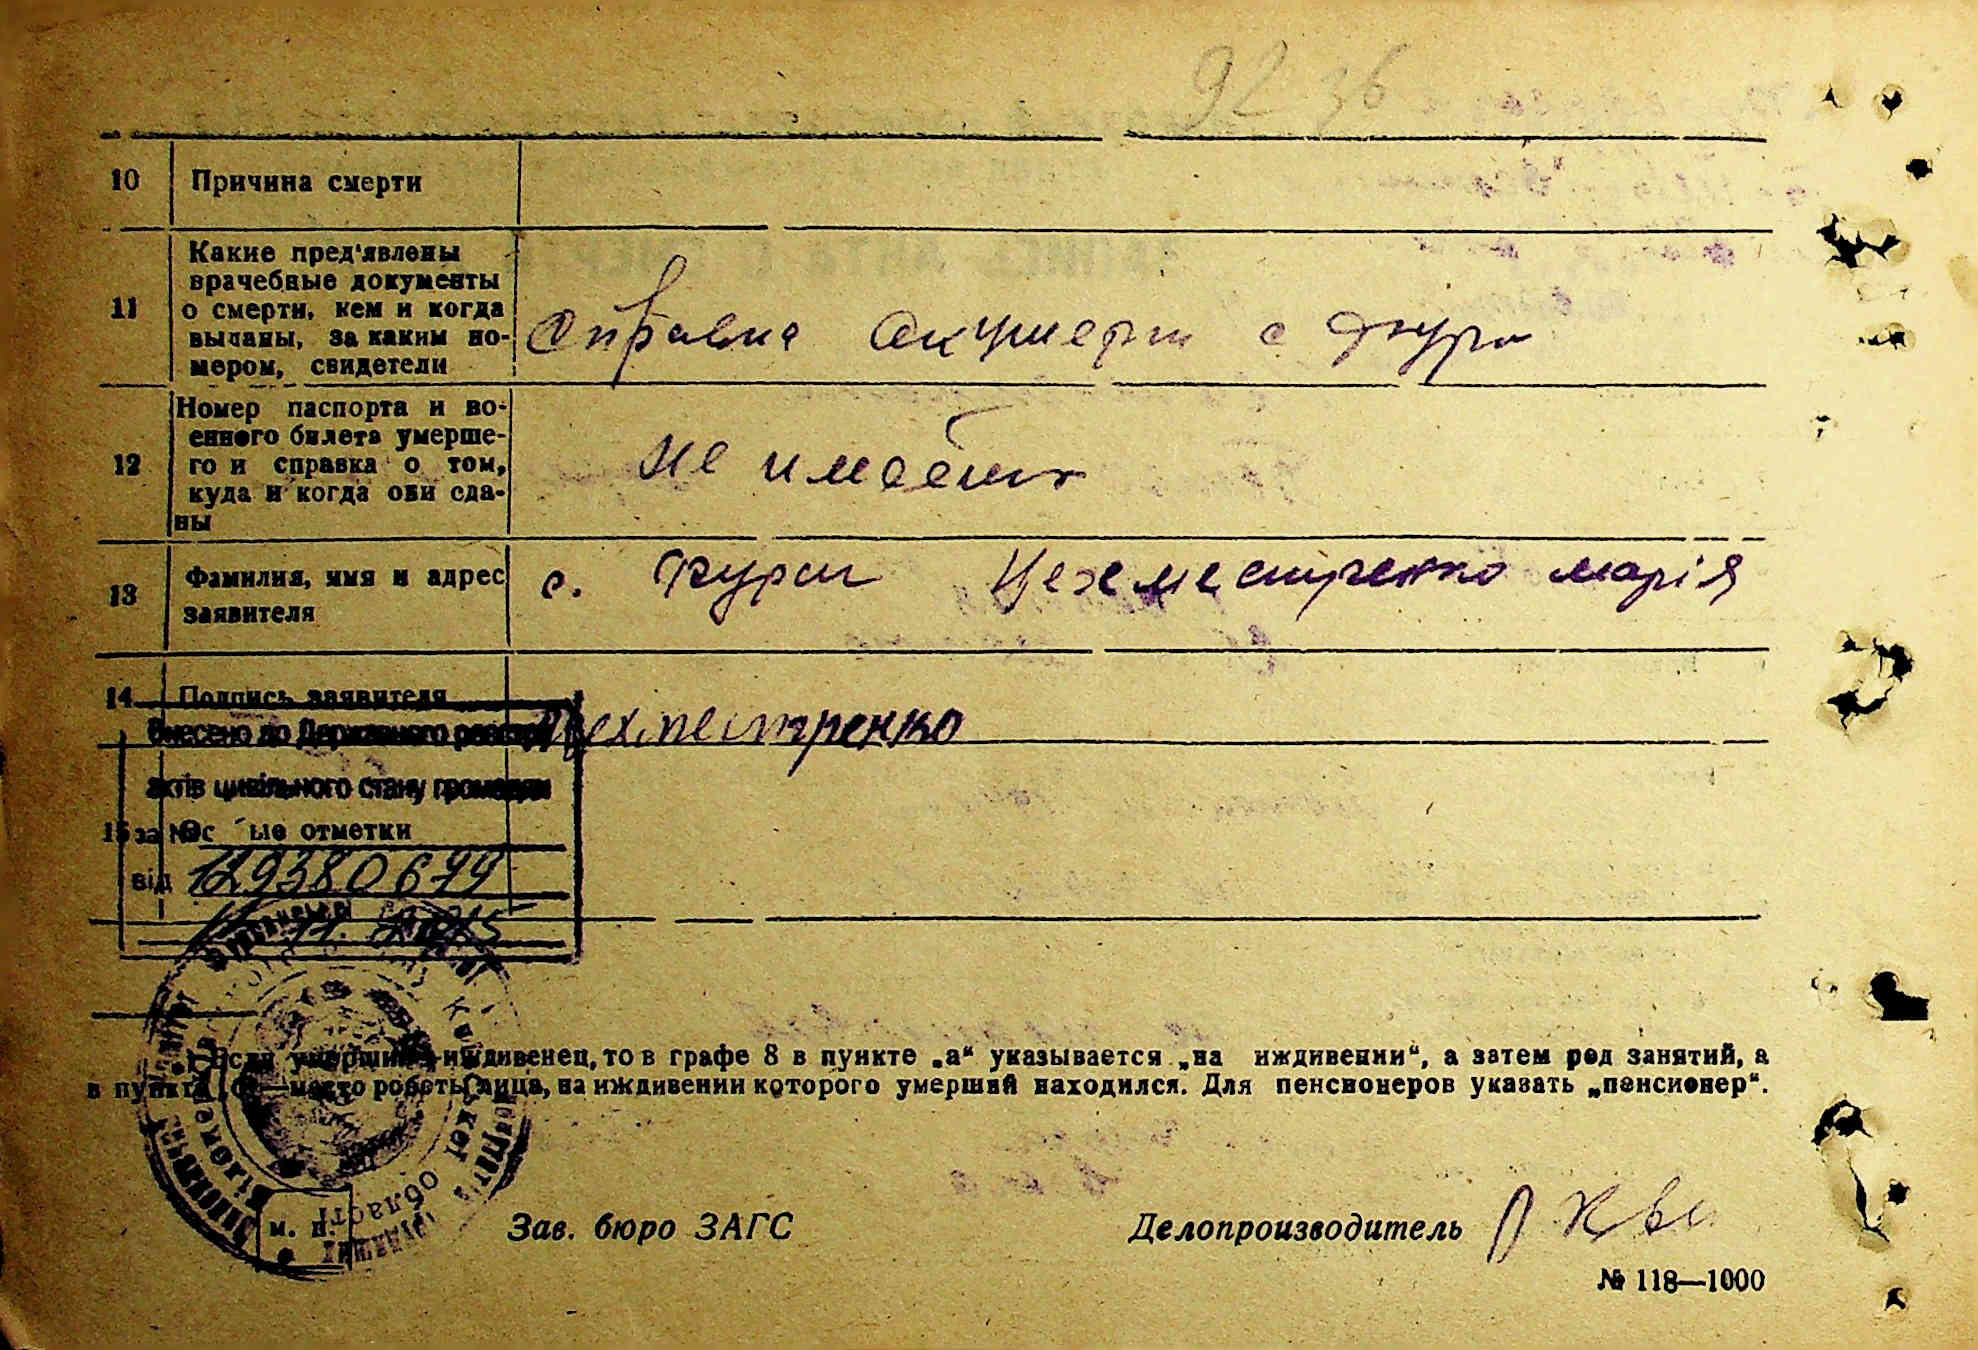 92 36
10 Причина смерти
11 Какие пред'явлены
врачебные документы
о смерти, кем и когда
выданы, за каким но-
мером, свидетели
акушерки с
12 Номер паспорта и во-
енного билета умерше-
го и справка о том,
куда и когда они сда-
ны
не имеется
13 Фамилия, имя и адрес
заявителя
с. Цехместренко марія
14 Подпись заявителя
Цехместренко
Внесено до Державного реєстру
актів цивільного стану громадян
за №
15 ые отметки
від 129380679
Если умерший иждивенец, то в графе 8 в пункте „а“ указывается „на иждивении“, а затем род занятий, а
в пункте место роботы лица, на иждивении которого умерший находился. Для пенсионеров указать „пенсионер“.
області
м. п.
Зав. бюро ЗАГС
Делопроизводитель
№ 118—1000